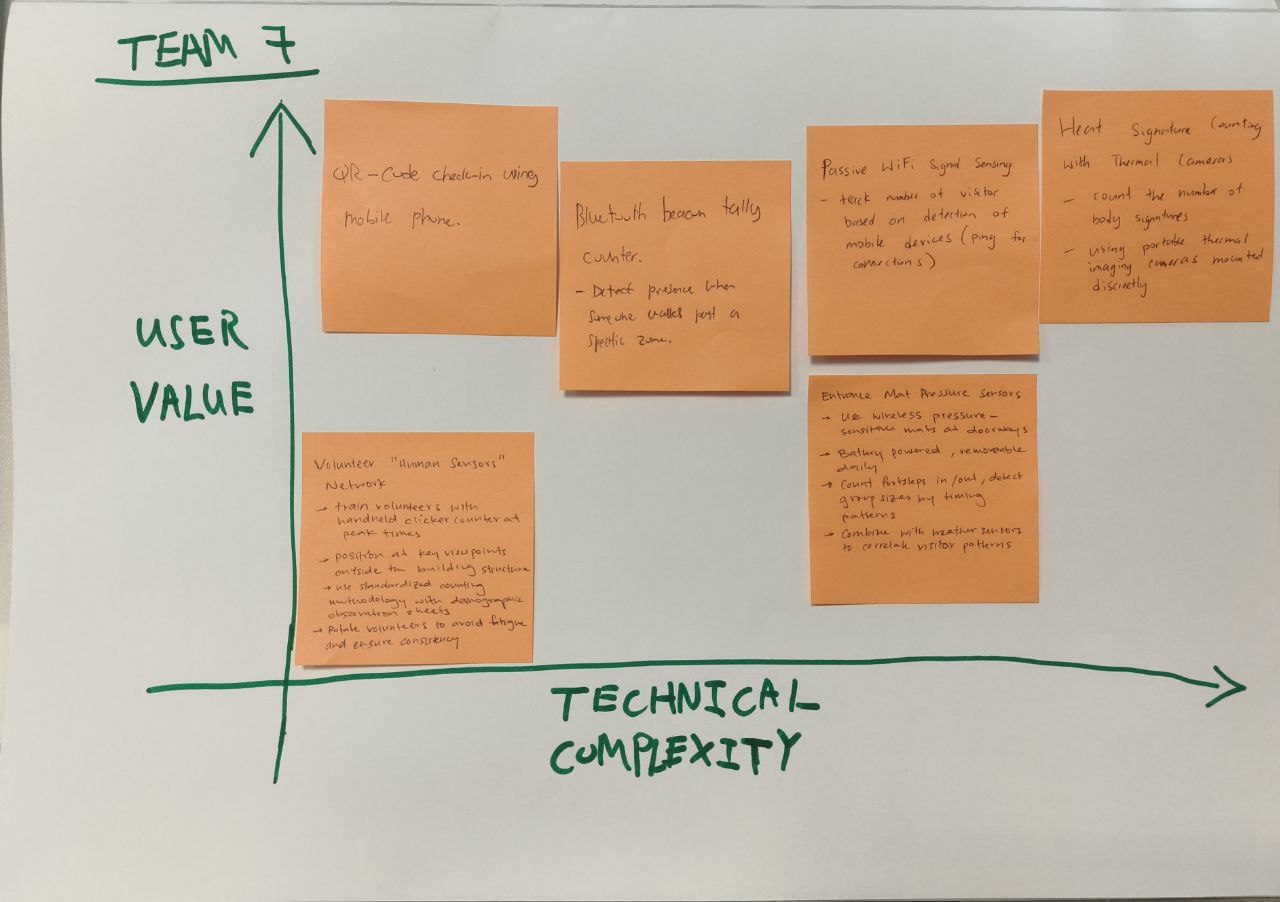 TEAM 7
USER
VALUE
QR-Code check-in using
mobile phone.
Bluetooth beacon tally
counter.
- Detect presence when
someone walks past a
specific zone.
Passive WiFi Signal Sensing
- track number of visitor
based on detection of
mobile devices (ping for
connections)
Heat Signature Counting
with Thermal Cameras
- count the number of
body signatures
- using portable thermal
imaging cameras mounted
discreetly
Volunteer "Human Sensors"
Network
→ train volunteers with
handheld clicker counter at
peak times
→ position at key viewpoints
outside the building structure
→ use standardized counting
methodology with demographic
observation sheets
→ Rotate volunteers to avoid fatigue
and ensure consistency
Entrance Mat Pressure Sensors
→ Use wireless pressure-
sensitive mats at doorways
→ Battery powered, removeable
daily
→ Count footsteps in/out, detect
group sizes by timing
patterns
→ Combine with weather sensors
to correlate visitor patterns
TECHNICAL
COMPLEXITY